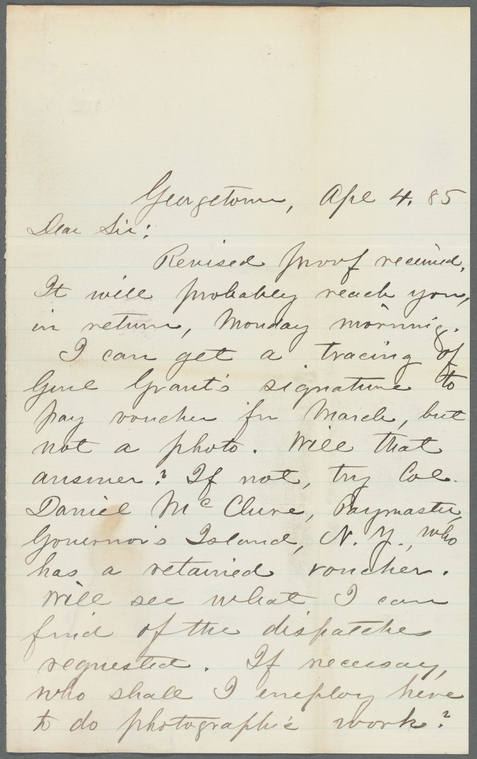 Georgetown, Apl 4. 85
Dear Sir:
Revised proof received.
It will probably reach you,
in return, Monday morning.
I can get a tracing of
Genl Grant's signature to
pay voucher for March, but
not a photo. Will that
answer? If not, try Col.
Daniel McClure, Paymaster,
Governor's Island, N. Y., who
has a retained voucher.
Will see what I can
find of the dispatches
requested. If necessary,
who shall I employ here
to do photographic work?